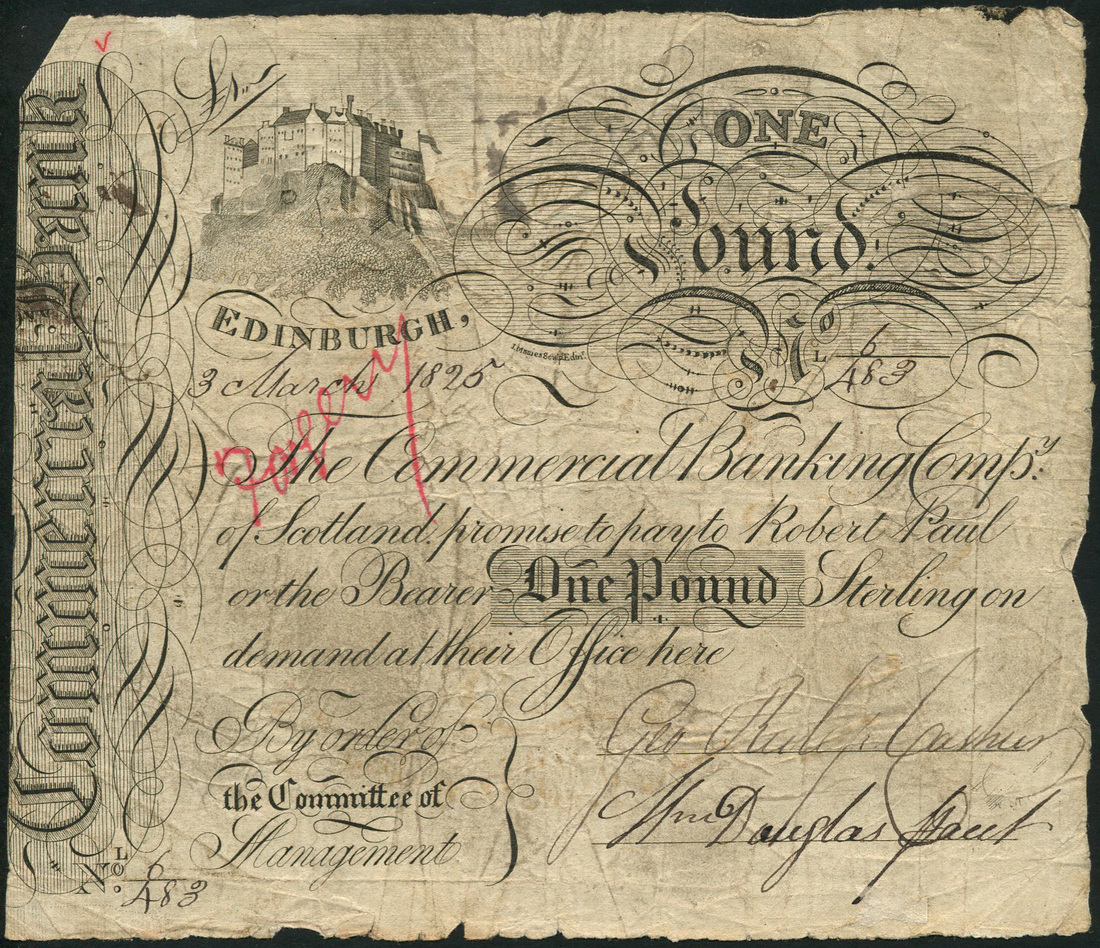 Commercial Bank
ONE
Pound.
EDINBURGH,
3 March 1825
No L 6/483
Forgery
The Commercial Banking Compy.
of Scotland promise to pay to Robert Paul
or the Bearer One Pound Sterling on
demand at their Office here
By order of
the Committee of
Management
Geo Cashier
Wm Douglas Pacct
No. L 6/483